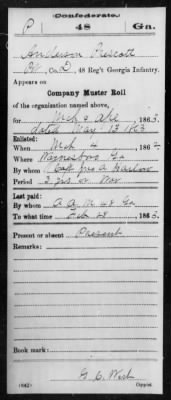 Confederate.
P 48 Ga.
Anderson Prescott
Pvt, Co. D, 48 Reg't Georgia Infantry.
Appears on
Company Muster Roll
of the organization named above,
for Mch & Apl, 1863.
dated May 13 1863
Enlisted:
When Mch 4, 1862
Where Waynesboro Ga
By whom Capt Jno A Harlow
Period 3 yrs or War
Last paid:
By whom A Q M 48 Ga
To what time Feb 28, 1863
Present or absent Present
Remarks:
Book mark:
(642) Copyist.